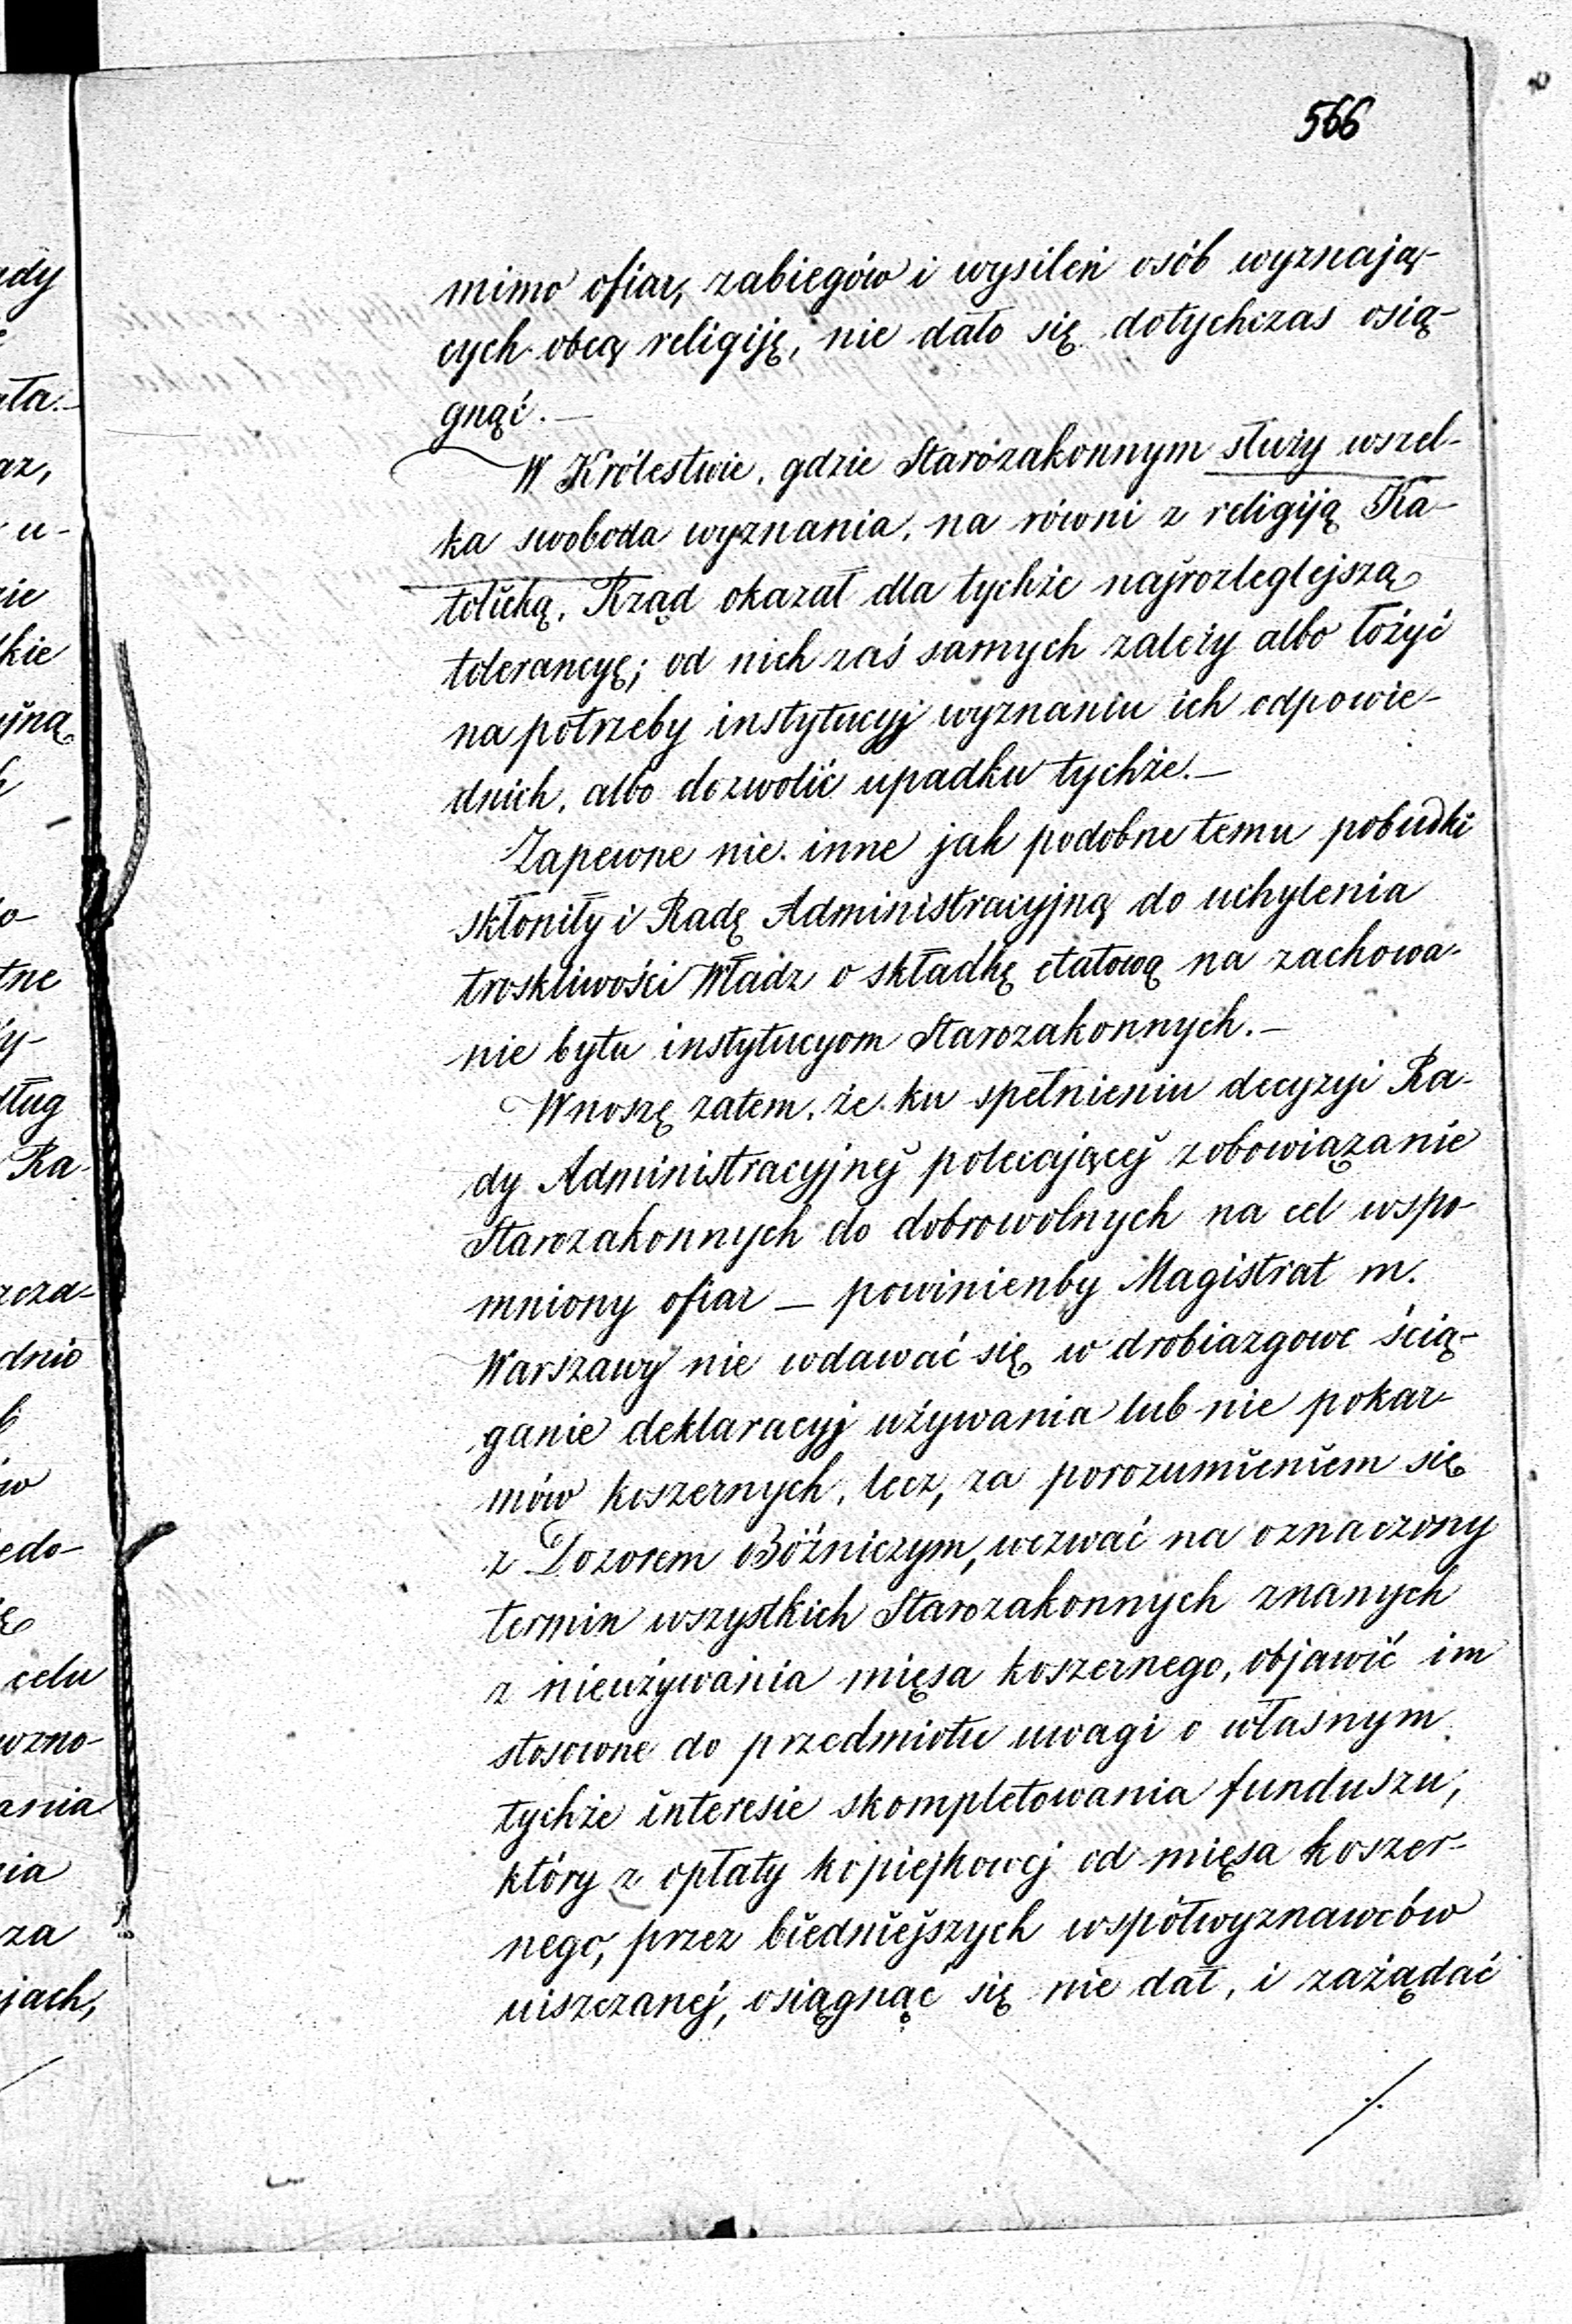 566
mimo ofiar, zabiegów i wysileń osób wyznają-
cych obcą religiję, nie dało się dotychczas osią-
gnąć.—
W Królestwie, gdzie Starozakonnym służy wszel-
ka swoboda wyznania, na równi z religiją Ka-
tolicką, Rząd okazał dla tychże najrozleglejszą
tolerancyę; od nich zaś samych zależy albo łożyć
na potrzeby instytucyj wyznaniu ich odpowie-
dnich, albo dozwolić upadku tychże.—
Zapewne nie inne jak podobne temu pobudki
skłoniły i Radę Administracyjną do uchylenia
troskliwości Władz o składkę etatową na zachowa-
nie bytu instytucyom Starozakonnych.—
Wnoszę zatem, że ku spełnieniu decyzyi Ra-
dy Administracyjnej polecającej zobowiązanie
Starozakonnych do dobrowolnych na cel wspo-
mniony ofiar — powinienby Magistrat m.
Warszawy nie wdawać się w drobiazgowe ścią-
ganie deklaracyj używania lub nie pokar-
mów koszernych, lecz, za porozumieniem się
z Dozorem Bóźniczym, wezwać na oznaczony
termin wszystkich Starozakonnych znanych
z nieużywania mięsa koszernego, objawić im
stosowne do przedmiotu uwagi o własnym
tychże interesie skompletowania funduszu,
który z opłaty kopiejkowej od mięsa koszer-
nego, przez biedniejszych współwyznawców
uiszczanej, osiągnąć się nie dał, i zażądać
ady
ała.—
az,
u-
zie
kie
yjną
o-
tne
y-
dług
Ra-
dnio
edo-
celu
wzno-
ania
nia
za
jach,